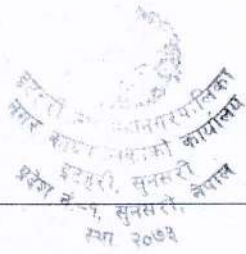 इटहरी उपमहानगरपालिका
नगर कार्यपालिकाको कार्यालय
इटहरी, सुनसरी
प्रदेश नं.-१, सुनसरी, नेपाल
स्था २०७३